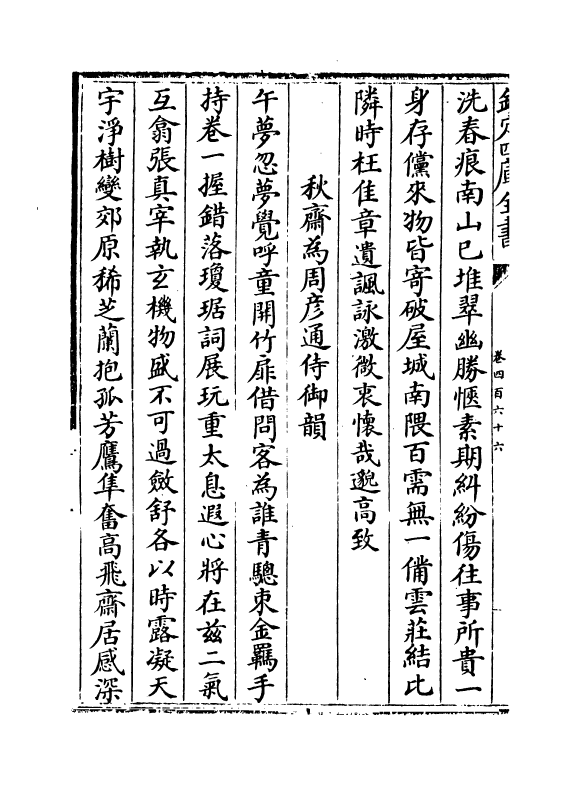 欽定四庫全書
卷四百六十六
洗春痕南山已堆翠幽勝愜素期糾紛傷往事所貴一
身存儻來物皆寄破屋城南隈百需無一備雲莊結比
隣時枉佳章遺諷詠激微衷懷哉邈高致
秋齋為周彦通侍御韻
午夢忽夢覺呼童開竹扉借問客為誰青驄束金羈手
持卷一握錯落瓊琚詞展玩重太息遐心將在兹二氣
互翕張真宰執玄機物盛不可過斂舒各以時露凝天
宇淨樹變郊原稀芝蘭抱孤芳鷹隼奮高飛齋居感深